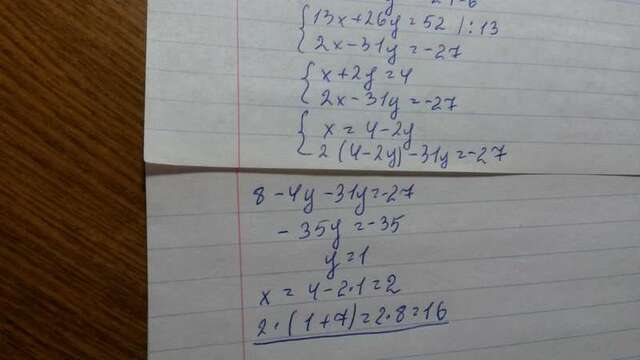 13x+26y=52 |:13
2x-31y=-27
x+2y=4
2x-31y=-27
x=4-2y
2(4-2y)-31y=-27
8-4y-31y=-27
-35y=-35
y=1
x=4-2·1=2
2·(1+7)=2·8=16